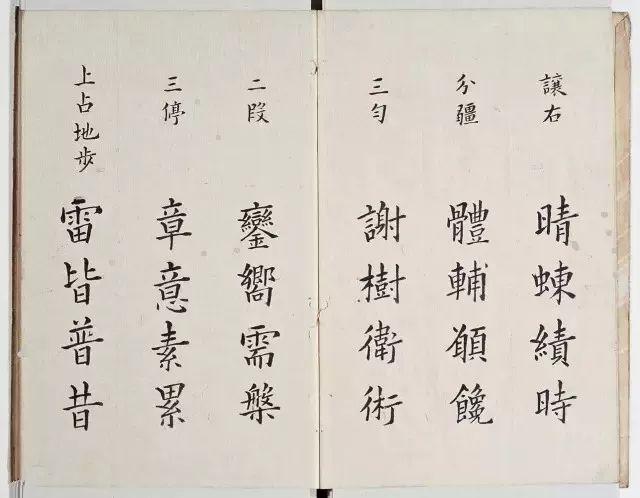 讓右
晴蝀績時
分疆
體輔頠饞
三勻
謝樹衛術
二段
鑾嚮需槃
三停
章意素累
上占地步
雷皆普昔